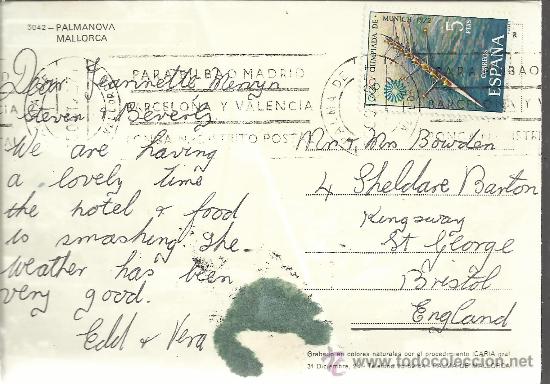 3042 - PALMANOVA
MALLORCA
Dear Jeannette
Steven & Beverly
We are having
a lovely time
the hotel & food
is smashing. The
weather has been
very good.
Edd & Vera
PARA BILBAO MADRID
BARCELONA Y VALENCIA
OLIMPIADA DE MUNICH 1972
5 PTS
CORREOS
ESPAÑA
Mr & Mrs Bowden
4 Sheldare Barton
Kingsway
St George
Bristol
England
Grabado en colores naturales por el procedimiento "CARIA graf"
31 Diciembre,
todocoleccion